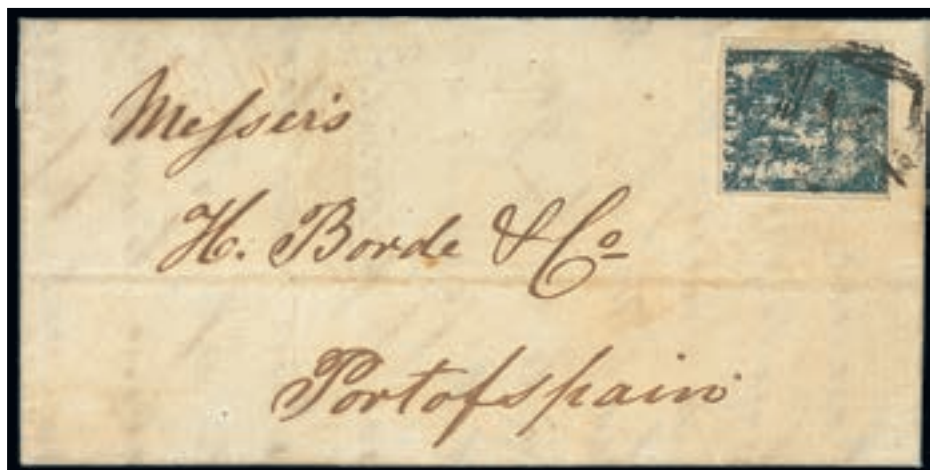 Messers
H. Borde & Co
Portofspain